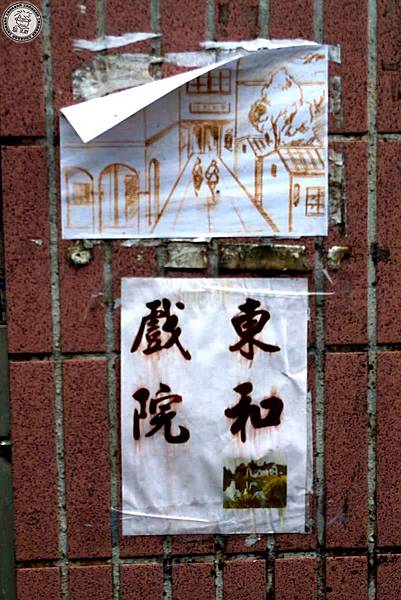 東和
戲院